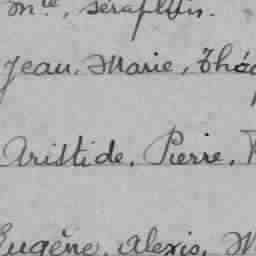 Mte, Séraphin.
Jean, Marie, Théo
Aristide, Pierre,
Eugène, Alexis, M